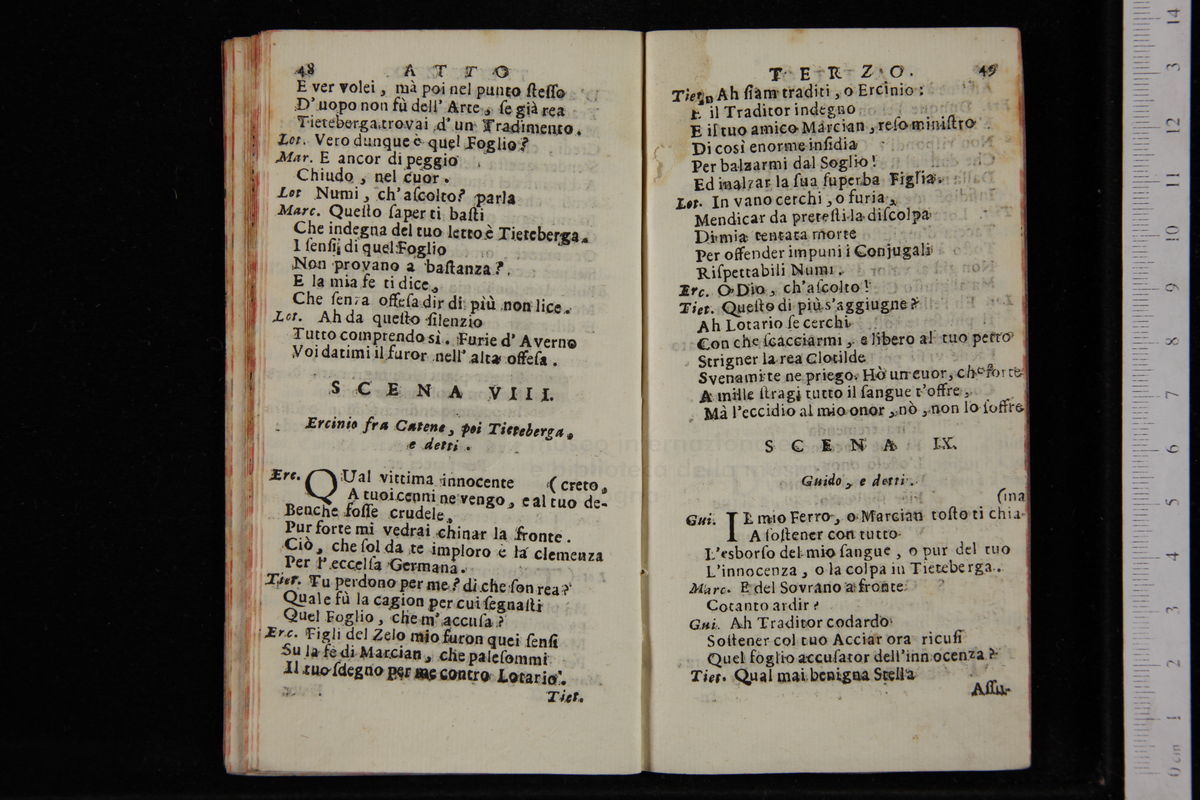 48 ATTO
E ver volei, mà poi nel punto ſteſſo
D'uopo non fù dell'Arte, ſe già rea
Tieteberga trovai d'un Tradimento.
Lot. Vero dunque è quel Foglio?
Mar. E ancor di peggio
Chiudo, nel cuor.
Lot Numi, ch'aſcolto? parla
Marc. Queſto ſaper ti baſti
Che indegna del tuo letto è Tieteberga.
I ſenſi di quel Foglio
Non provano a baſtanza?
E la mia fe ti dice,
Che ſenza offeſa dir di più non lice.
Lot. Ah da queſto ſilenzio
Tutto comprendo sì. Furie d'Averno
Voi datimi il furor nell'alta offeſa.
SCENA VIII.
Ercinio fra Catene, poi Tieteberga,
e detti.
Erc. QUal vittima innocente (creto,
A tuoi cenni ne vengo, e al tuo de-
Benche foſſe crudele,
Pur forte mi vedrai chinar la fronte.
Ciò, che ſol da te imploro è la clemenza
Per l'eccelſa Germana.
Tiet. Tu perdono per me? di che ſon rea?
Quale fù la cagion per cui ſegnaſti
Quel Foglio, che m'accuſa?
Erc. Figli del Zelo mio furon quei ſenſi
Su la fè di Marcian, che paleſommi
Il tuo ſdegno per me contro Lotario.
Tiet.
TERZO. 49
Tiet. Ah ſiam traditi, o Ercinio:
E il Traditor indegno
E il tuo amico Marcian, reſo miniſtro
Di così enorme inſidia
Per balzarmi dal Soglio!
Ed inalzar la ſua ſuperba Figlia.
Lot. In vano cerchi, o furia,
Mendicar da preteſti la diſcolpa
Di mia tentata morte
Per offender impuni i Conjugali
Riſpettabili Numi.
Erc. O Dio, ch'aſcolto!
Tiet. Queſto di più s'aggiugne?
Ah Lotario ſe cerchi
Con che ſcacciarmi, e libero al tuo petto
Strigner la rea Clotilde
Svenami te ne priego. Hò un cuor, che forte
A mille ſtragi tutto il ſangue t'offre,
Mà l'eccidio al mio onor, nò, non lo ſoffre
SCENA IX.
Guido, e detti.
(ma
Gui. IL mio Ferro, o Marcian toſto ti chia-
A ſoſtener con tutto
L'esborſo del mio ſangue, o pur del tuo
L'innocenza, o la colpa in Tieteberga.
Marc. E del Sovrano a fronte
Cotanto ardir?
Gui. Ah Traditor codardo
Soſtener col tuo Acciar ora ricuſi
Quel foglio accuſator dell'innocenza?
Tiet. Qual mai benigna Stella
Aſſu-
museo internazionale
e biblioteca della musica
0 cm 1 2 3 4 5 6 7 8 9 10 11 12 3 14